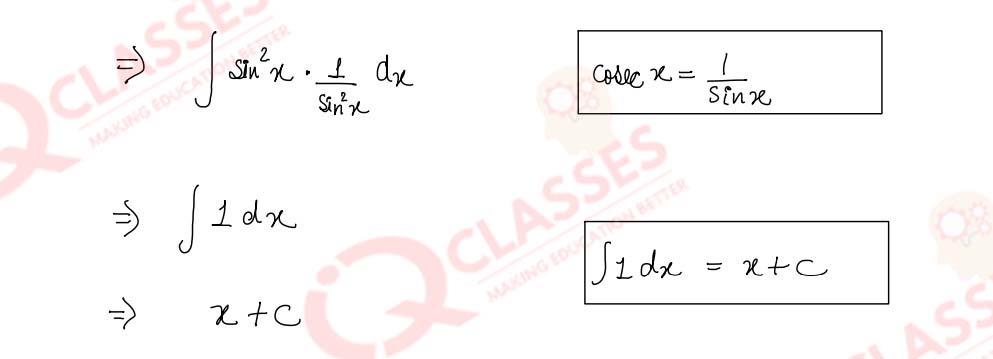 ⇒ ∫ sin²x · 1/sin²x dx
cosec x = 1/sin x
⇒ ∫ 1 dx
∫ 1 dx = x + c
⇒ x + c
IQ CLASSES
MAKING EDUCATION BETTER
CLASSES
MAKING EDUCATION BETTER
LASS